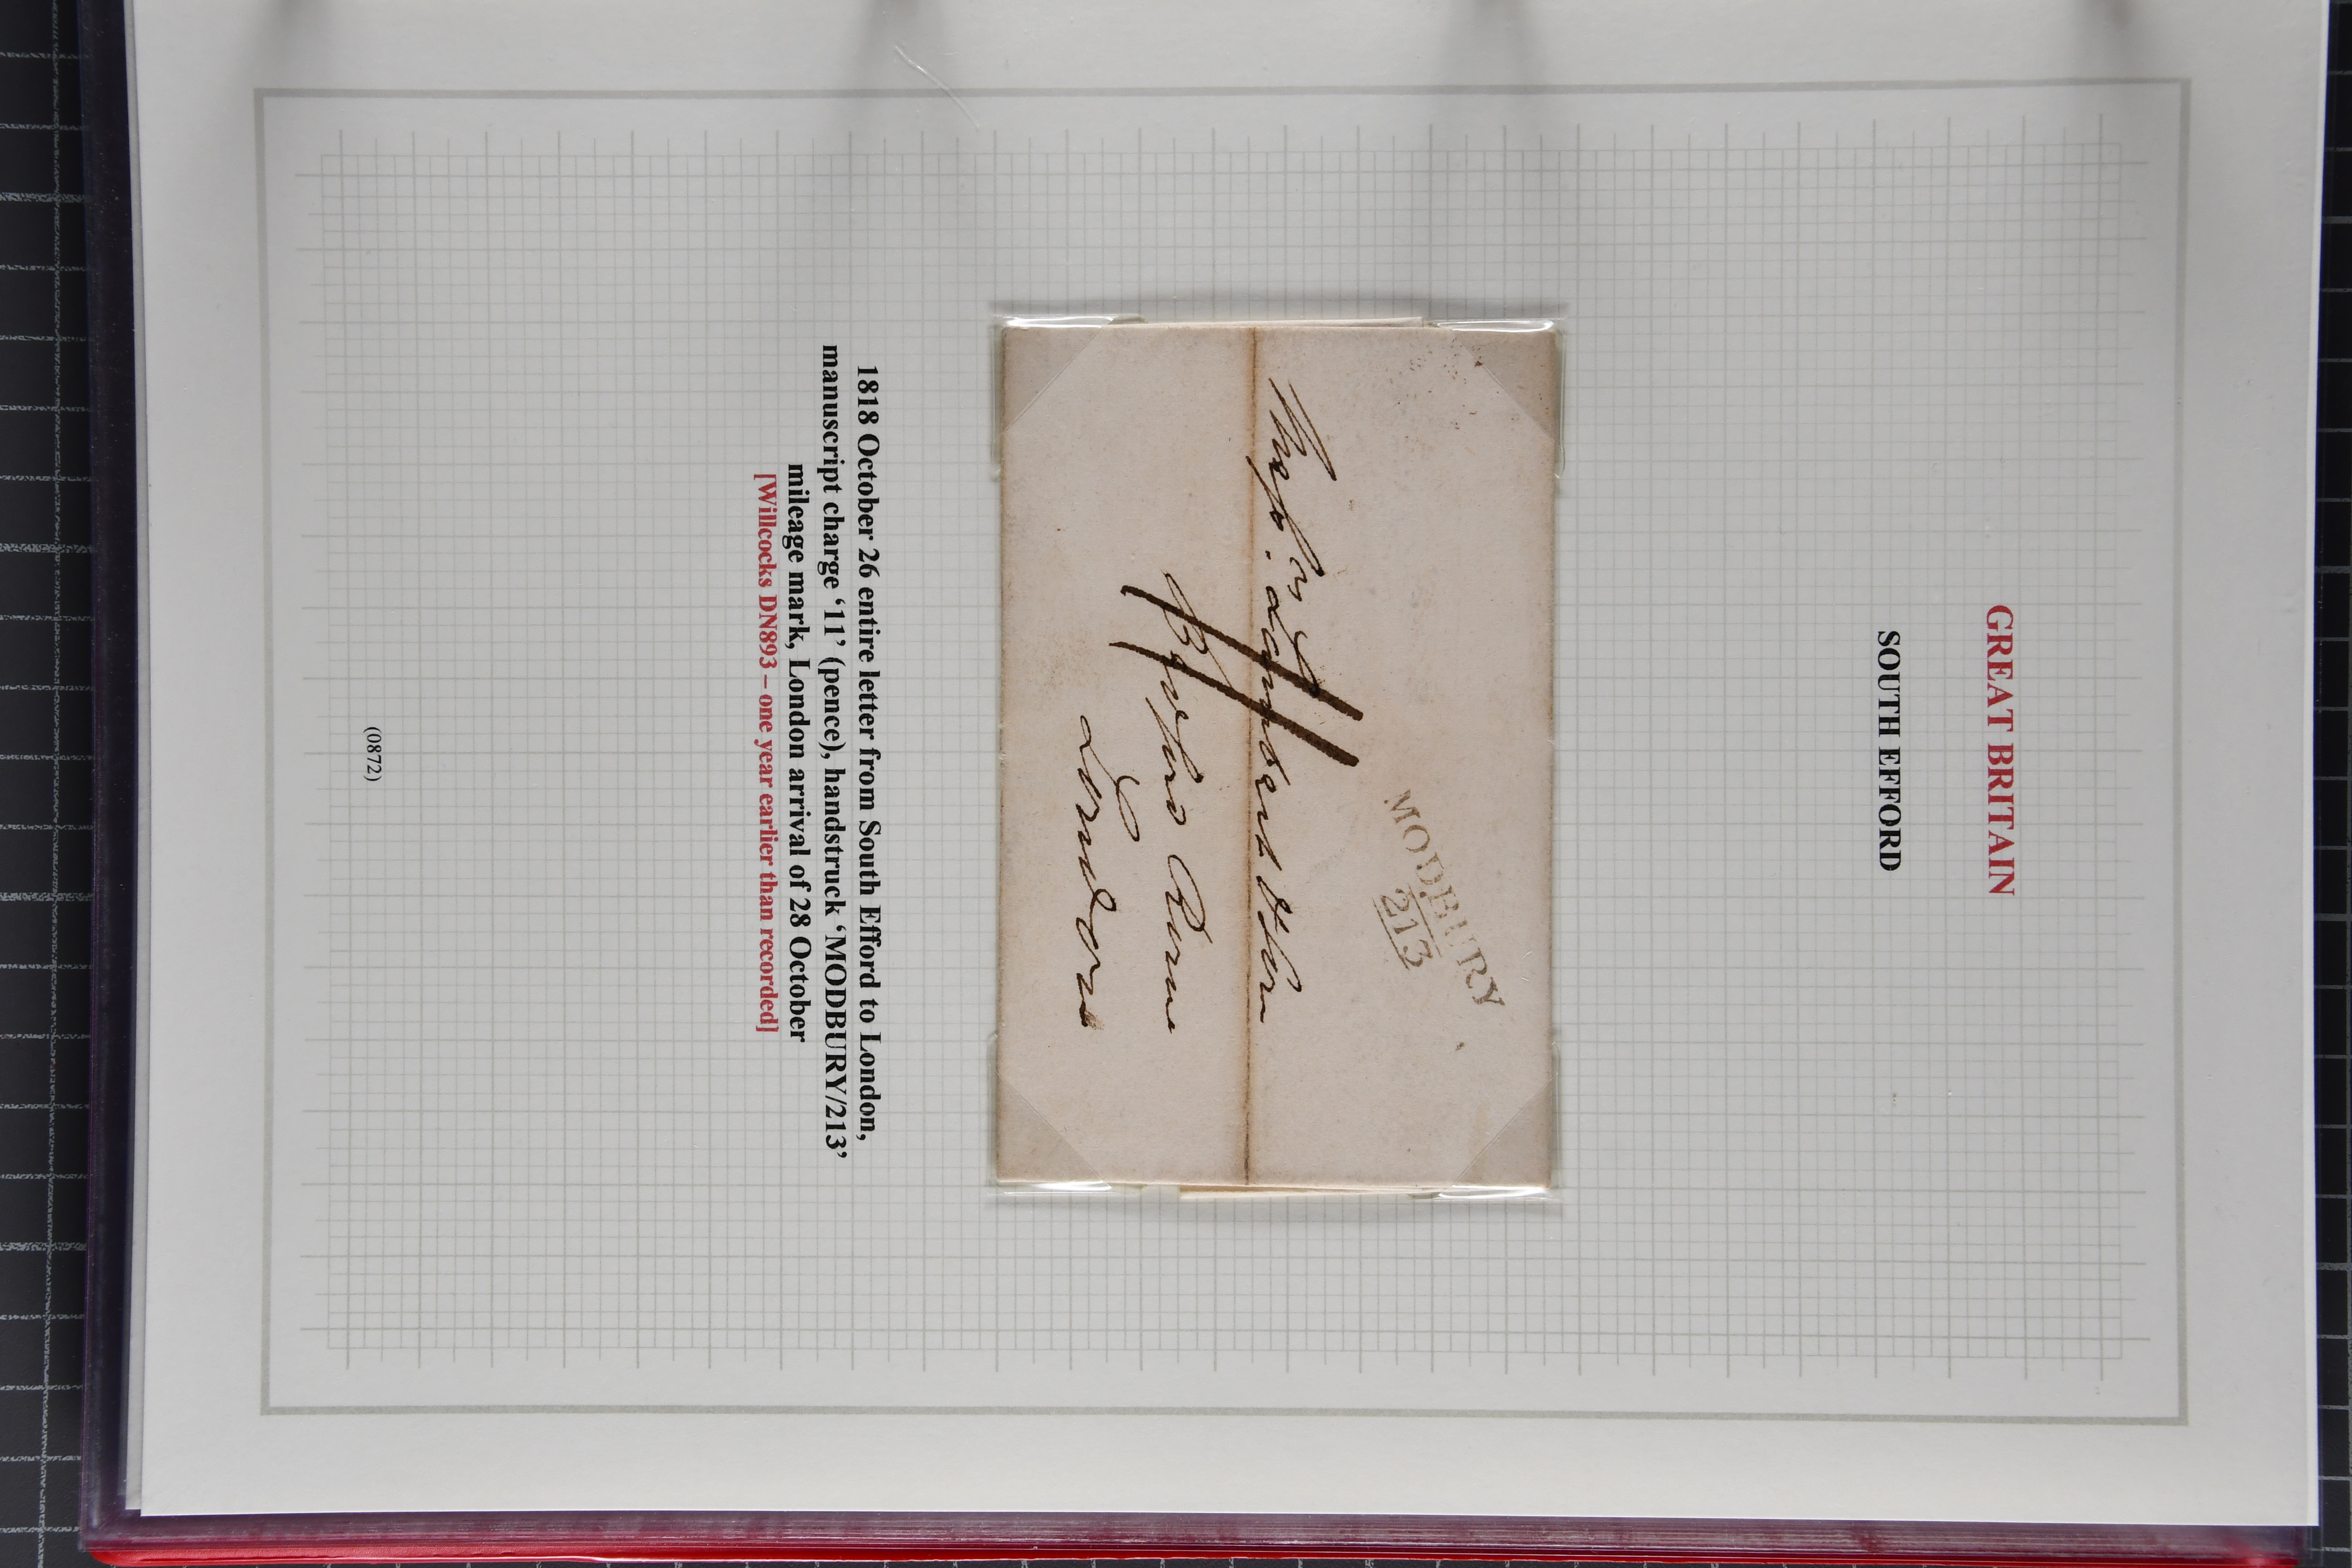 GREAT BRITAIN
SOUTH EFFORD
MODBURY
213
11
Bedford Row
London
1818 October 26 entire letter from South Efford to London,
manuscript charge ‘11’ (pence), handstruck ‘MODBURY/213’
mileage mark, London arrival of 28 October
[Willcocks DN893 – one year earlier than recorded]
(0872)